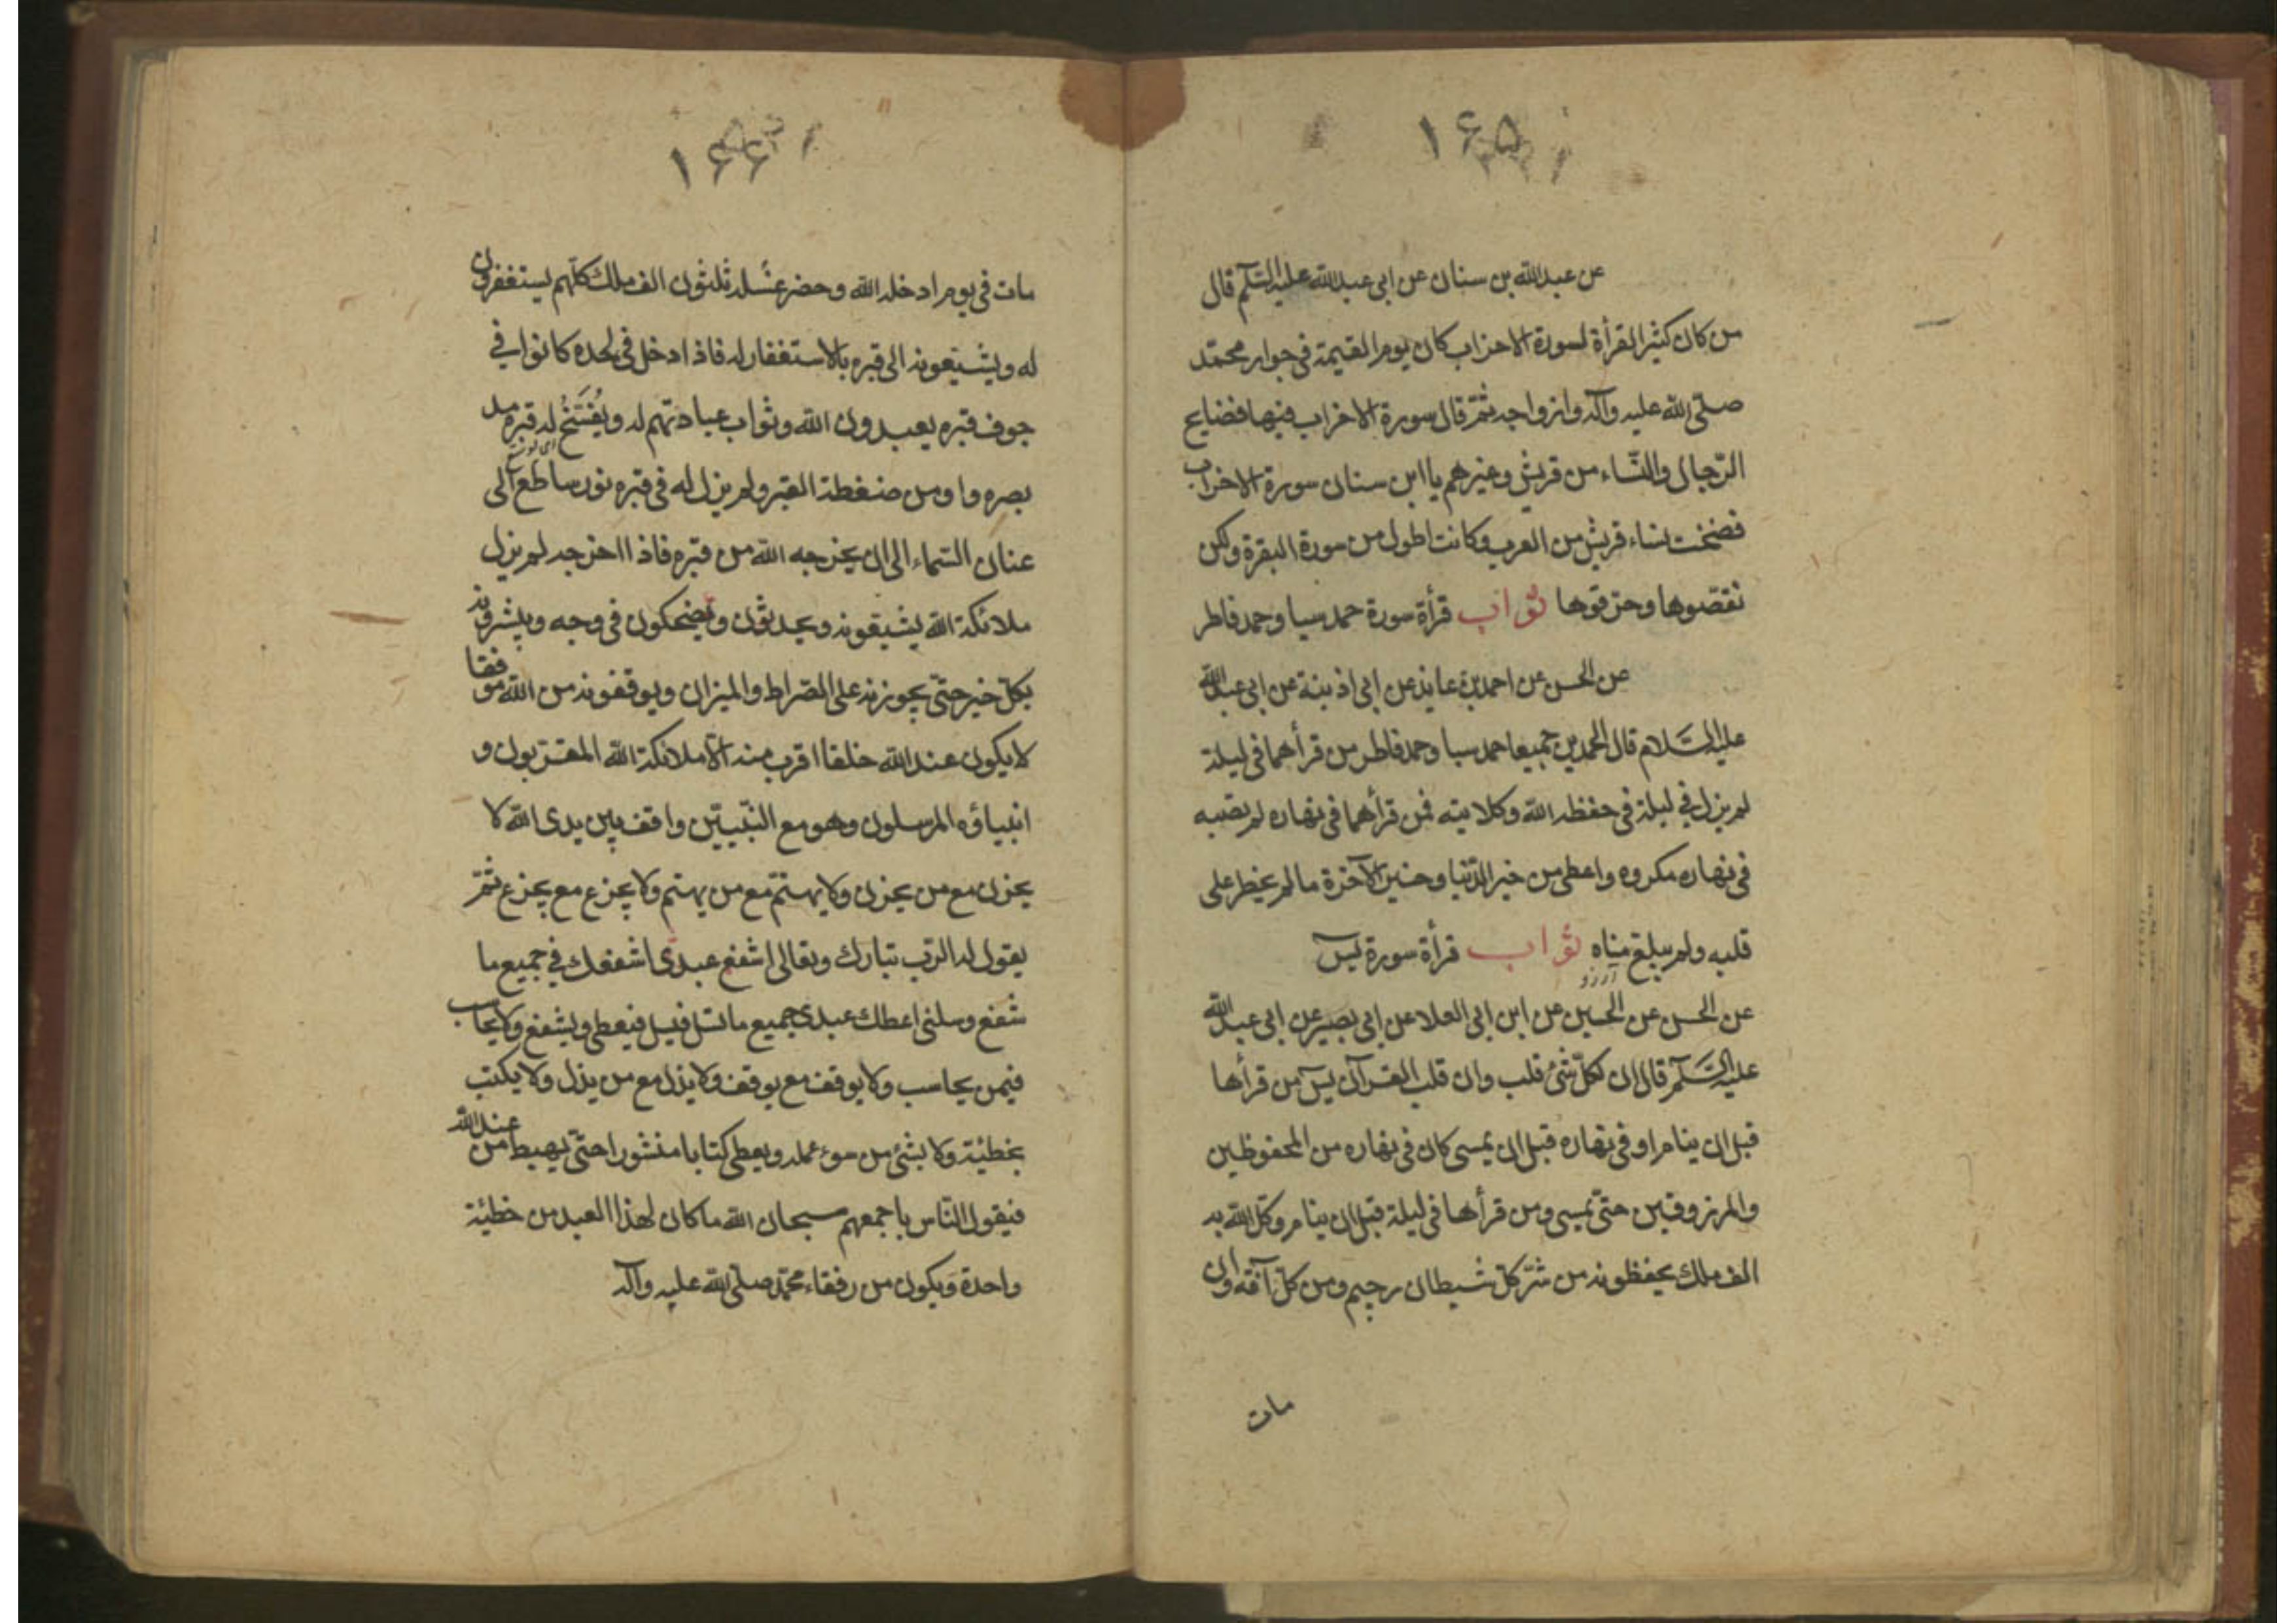 ١۶۵
عن عبدالله بن سنان عن ابی عبدالله علیه السّلم قال
من کان کثیر القرأة لسورة الاحزاب کان یوم القیمة فی جوار محمّد
صلّی الله علیه وآله وازواجه ثمّ قال سورة الاحزاب فیها فضایح
الرّجال والنّساء من قریش وغیرهم یا ابن سنان سورة الاحزاب
فضحت نساء قریش من العرب وکانت اطول من سورة البقرة ولکن
نقصوها وحرّفوها ثواب قرأة سورة حمد سبا وحمد فاطر
عن الحسن عن احمد بن عایذ عن ابی اذینة عن ابی عبدالله
علیه السّلام قال الحمدین جمیعا حمد سبا وحمد فاطر من قرأهما فی لیلة
لم یزل فی لیلة فی حفظه الله وکلایته فمن قرأهما فی نهاره لم یصبه
فی نهاره مکروه واعطی من خیر الدّنیا وخیر الآخرة ما لم یخطر علی
قلبه ولم یبلغ مناه ثواب قرأة سورة یس
آرزو
عن الحسن عن الحسین عن ابن ابی العلا عن ابی بصیر عن ابی عبدالله
علیه السّلم قال ان لکلّ شئ قلب وان قلب القرآن یس من قرأها
قبل ان ینام او فی نهاره قبل ان یمسی کان فی نهاره من المحفوظین
والمرزوقین حتّی یمسی ومن قرأها فی لیلة قبل ان ینام وکّل الله به
الف ملك یحفظونه من شرّ کلّ شیطان رجیم ومن کلّ آفة وان
مات
١۶۶
مات فی یوم ادخله الله وحضر غسله ثلثون الف ملك کلّهم یستغفرون
له ویشیّعونه الی قبره بالاستغفار له فاذا ادخل فی لحده کانوا فی
جوف قبره یعبدون الله وثواب عبادتهم له ویُفتَحُ له قبره مد
بصره واومن ضغطة القبر ولم یزل له فی قبره نور ساطع الی
عنان السّماء الی ان یخرجه الله من قبره فاذا اخرجه لم یزل
ملائکة الله یشیّعونه ویحدّثون ویضحکون فی وجه ویبشرونه
بکلّ خیر حتّی یجوزنه علی الصّراط والمیزان ویوقفونه من الله موقفا
لا یکون عند الله خلقا اقرب منه الّا ملائکة الله المقرّبون و
انبیاؤه المرسلون وهو مع النّبیّین واقف بین یدی الله لا
یحزن مع من یحزن ولا یهتمّ مع من یهتم ولا یجزع مع یجزع ثمّ
یقول له الرّب تبارك وتعالی اشفع عبدی اشفعك فی جمیع ما
شفع وسلنی اعطك عبدی جمیع ما تسل فیسل فیعطی ویشفع ولا یحاسب
فیمن یحاسب ولا یوقف مع یوقف ولا یذل مع من یذل ولا یکتب
بخطیئة ولا بشئ من سوء عمله ویعطی کتابا منشورا حتّی یهبط من عند الله
فیقول النّاس باجمعهم سبحان الله ما کان لهذا العبد من خطیئة
واحدة ویکون من رفقاء محمّد صلّی الله علیه وآله